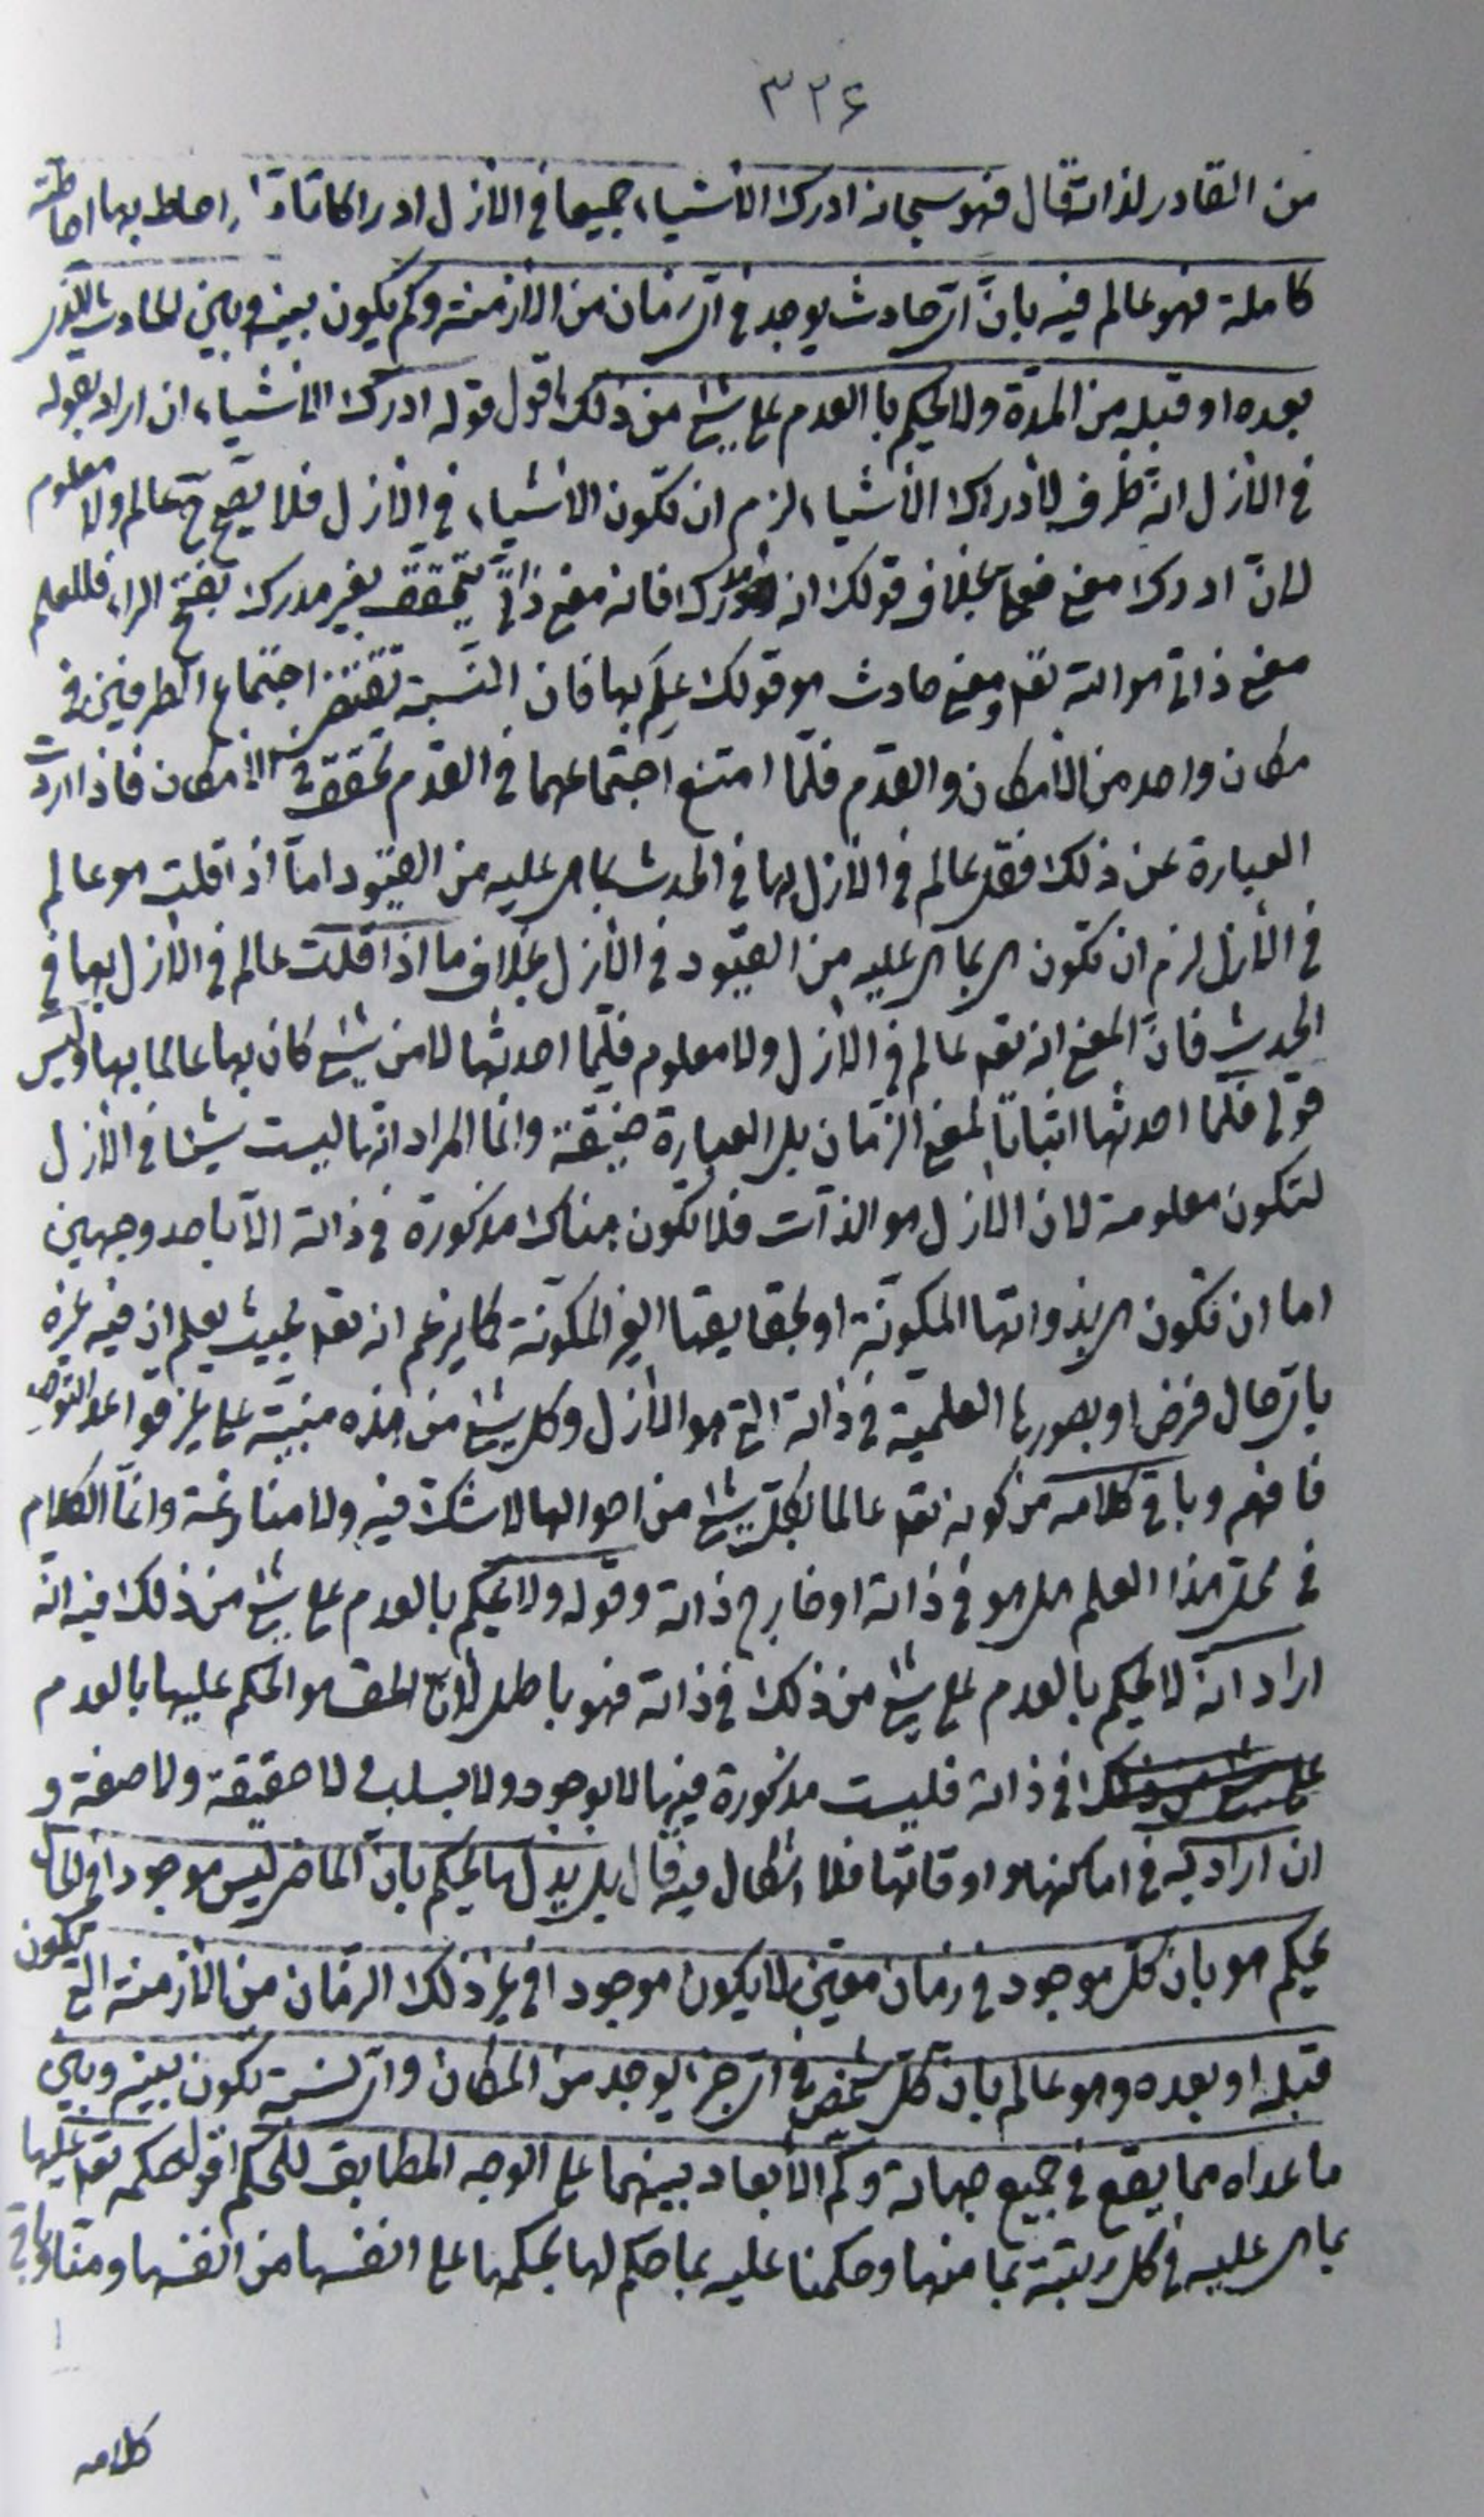 ٣٢۶
من القادر لذاته قال فهو سبحانه ادرك الأشياء جميعا في الأزل ادراكا تامّا واحاط بها احاطة
كاملة فهو عالم فيه بانّ ايّ حادث يوجد في ايّ زمان من الأزمنة وكم يكون بينه وبين الحادث الذى
بعده او قبله من المدّة ولا يحكم بالعدم على شئ من ذلك اقول قوله ادرك الأشياء ان اراد بقوله
في الأزل انّه ظرف لأدراك الأشياء لزم ان تكون الأشياء في الأزل فلا يصح ح عالم ولا معلوم
لانّ ادرك معنى فعلى بخلاف قولك انه مدرك فانه معنى ذاتىّ يتحقق بغير مدرك بفتح الراء فللعلم
معنى ذاتى هو الله تعه ومعنى حادث هو قولك علم بها فان النّسبة تقتضى اجتماع الطرفين في
مكان واحد من الأمكان والقدم فلمّا امتنع اجتماعهما في القدم تحقق في الأمكان فاذا اردت
العبارة عن ذلك فقل عالم في الأزل بها في الحدث بما هى عليه من القيود امّا اذا قلت هو عالم
في الأزل لزم ان تكون هى بما هى عليه من القيود في الأزل بخلاف ما اذا قلت عالم في الأزل بها في
الحدث فانّ المعنى انه تعه عالم في الأزل ولا معلوم فلمّا احدثها لا من شئ كان بها عالما بها وليس
قولى فلمّا احدثها اثباتاً لمعنى الزمان بل العبارة ضيّقة وانما المراد انها ليست شيئا في الأزل
لتكون معلومة لان الأزل هو الذّات فلا تكون هناك مذكورة في ذاته الّا باحد وجهين
اما ان تكون هى بذواتها المكوّنة او بحقايقها الغير المكوّنة كما يزعم انه تعه بحيث يعلم ان فيه غيره
باىّ حال فرض او بصورها العلمية في ذاته التى هو الأزل وكل شئ من هذه مبنيّة على غير قواعد التوحيد
فافهم وباقى كلامه من كونه تعه عالما بكلّ شئ من احوالها لا شكّ فيه ولا منازعة وانمّا الكلام
في محلّ هذا العلم هل هو في ذاته او خارج ذاته وقوله ولا يحكم بالعدم على شئ من ذلك فيه انّه
اراد انّه لا يحكم بالعدم على شئ من ذلك في ذاته فهو باطل لأنّ الحق هو الحكم عليها بالعدم
في ذاته فليست مذكورة فيها لا بوجود ولا بسلب لا حقيقة ولا صفة و
ان اراد به في اماكنها واوقاتها فلا اشكال فيه قال بل بدل ما يحكم بانّ الماضى ليس موجودا في الحال
يحكم هو بان كلّ موجود في زمان معيّن لا يكون موجودا في غير ذلك الزمان من الأزمنة التى يكون
قبله او بعده وهو عالم بانّ كلّ شخص في اىّ جزء يوجد من المكان واىّ نسبة تكون بينه وبين
ما عداه مما يقع في جميع جهاته وكم الأبعاد بينهما على الوجه المطابق للحكم اقول حكمه تعه عليها
بما هى عليه في كل رتبة بما منها وحكمنا عليه بما حكم لها بحكمها على انفسها من انفسها ومنا وباقى
كلامه